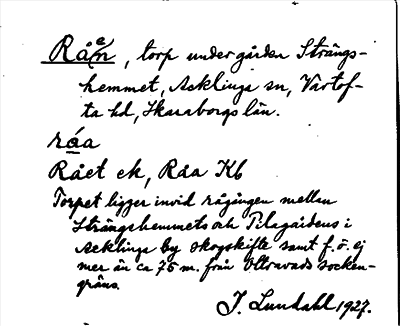 Råen, torp under gården Strängs-
hemmet, Acklinga sn, Vartof-
ta hd, Skaraborgs län.
råa
Rået ek, Råa Kb
Torpet ligger invid rågången mellan
Strängshemmets och Pilagårdens i
Acklinga by skogskifte samt f. ö. ej
mer än ca 75 m. från Oltravads socken-
gräns.
J. Lundahl 1927.